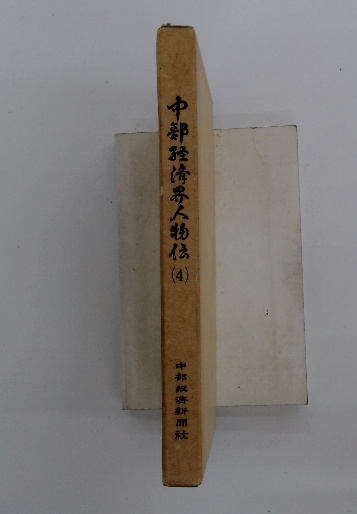 中部経済界人物伝(4)
中部経済新聞社